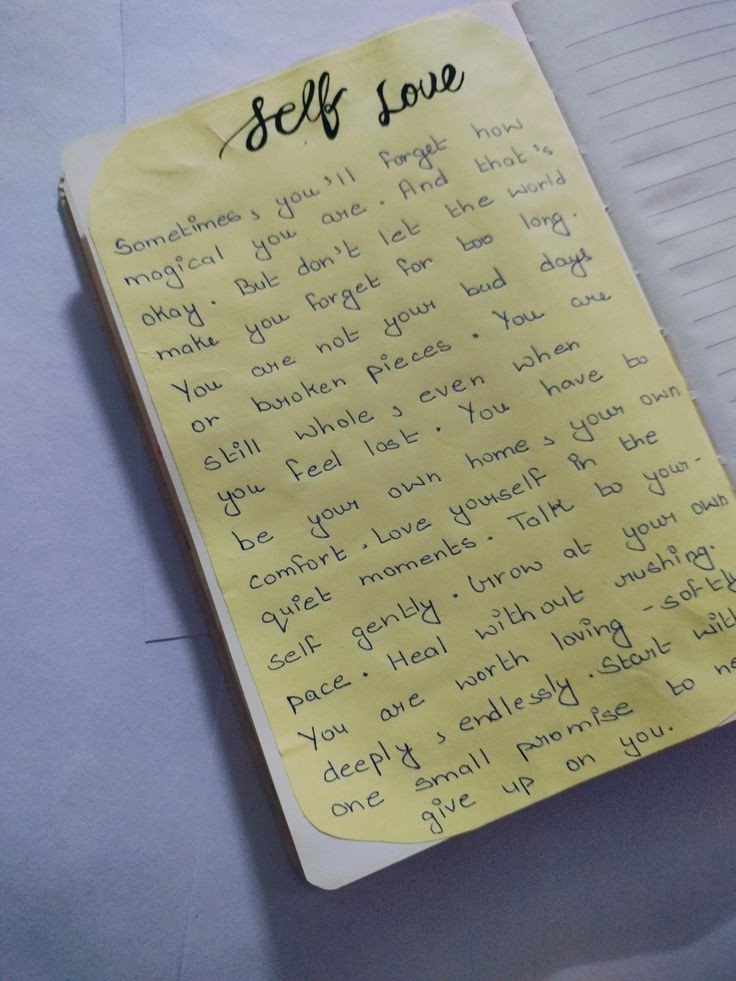 Self Love
Sometimes, you'll forget how
magical you are. And that's
okay. But don't let the world
make you forget for too long.
You are not your bad days
or broken pieces. You are
still whole, even when
you feel lost. You have to
be your own home, your own
comfort. Love yourself in the
quiet moments. Talk to your-
self gently. Grow at your own
pace. Heal without rushing.
You are worth loving - softly
deeply, endlessly. Start with
one small promise to
give up on you.